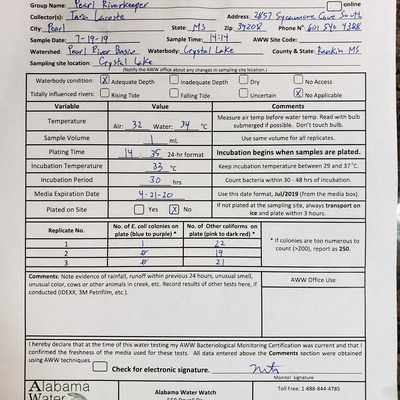 Group Name: Pearl Riverkeeper online
Collector(s) Tara Lacoste Address: 2857 Sycamore Cove South
City: Pearl State: MS Zip: 39208 Phone N°: 601 540 4388
Sample Date: 7-19-19 Sample Time: 14:14 AWW Site Code:
Watershed: Pearl River Basin Waterbody: Crystal Lake County & State: Rankin MS
Sampling site location: Crystal Lake
(Notify the AWW office about any changes in sampling site location.)
Waterbody condition: X Adequate Depth Inadequate Depth Dry No Access
Tidally influenced rivers: Rising Tide Falling Tide Uncertain X No Applicable
Variable Value Comments
Temperature Air: 32 Water: 34 °C Measure air temp before water temp. Read with bulb
submerged if possible. Don't touch bulb.
Sample Volume 1 mL Use same volume for all replicates.
Plating Time 14:35 24-hr format Incubation begins when samples are plated.
Incubation Temperature 33 °C Keep incubation temperature between 29 and 37 °C.
Incubation Period 30 hrs Count bacteria within 30 - 48 hrs of incubation.
Media Expiration Date 4-21-20 Use this date format, Jul/2019 (from the media box).
Plated on Site Yes X No If not plated at the sampling site, always transport on
ice and plate within 3 hours.
Replicate No. No. of E. coli colonies on
plate (blue to purple) * No. of Other coliforms on
plate (pink to dark red) *
1 1 22
2 0 19
3 0 21
* If colonies are too numerous to
count (>200), report as 250.
Comments: Note evidence of rainfall, runoff within previous 24 hours, unusual smell,
unusual color, cows or other animals in creek, etc. Record results of other tests here, if
conducted (IDEXX, 3M Petrifilm, etc.).
AWW Office Use
I hereby declare that at the time of water testing my AWW Bacteriological Monitoring Certification was current and that I
confirmed the freshness of the media used for these tests. All data entered above the Comments section were obtained
using AWW techniques.
Check for electronic signature.
Monitor signature
Alabama
Water
Alabama Water Watch
Toll Free: 1-888-844-4785